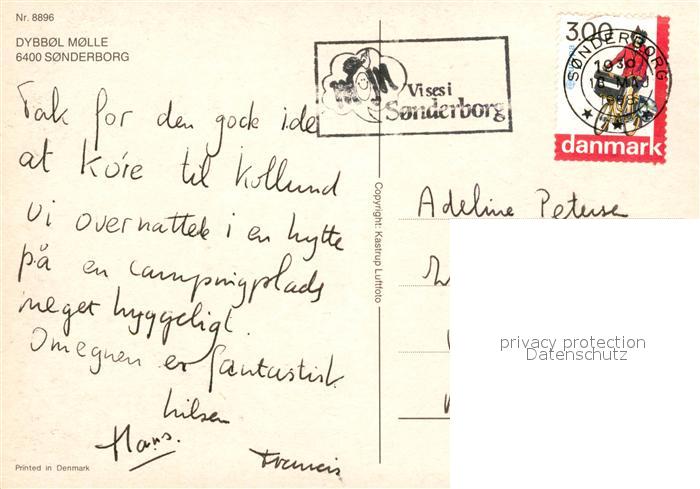 Nr. 8896
DYBBØL MØLLE
6400 SØNDERBORG
Tak for den gode ide
at køre til Kollund
Vi overnattede i en hytte
på en campingplads
meget hyggeligt.
Omegnen er fantastisk
hilsen
Hans.
Francis
Printed in Denmark
Copyright: Kastrup Luftfoto
Vi ses i
Sønderborg
3.00
SØNDERBORG
1930
danmark
Adeline Petersen
privacy protection
Datenschutz